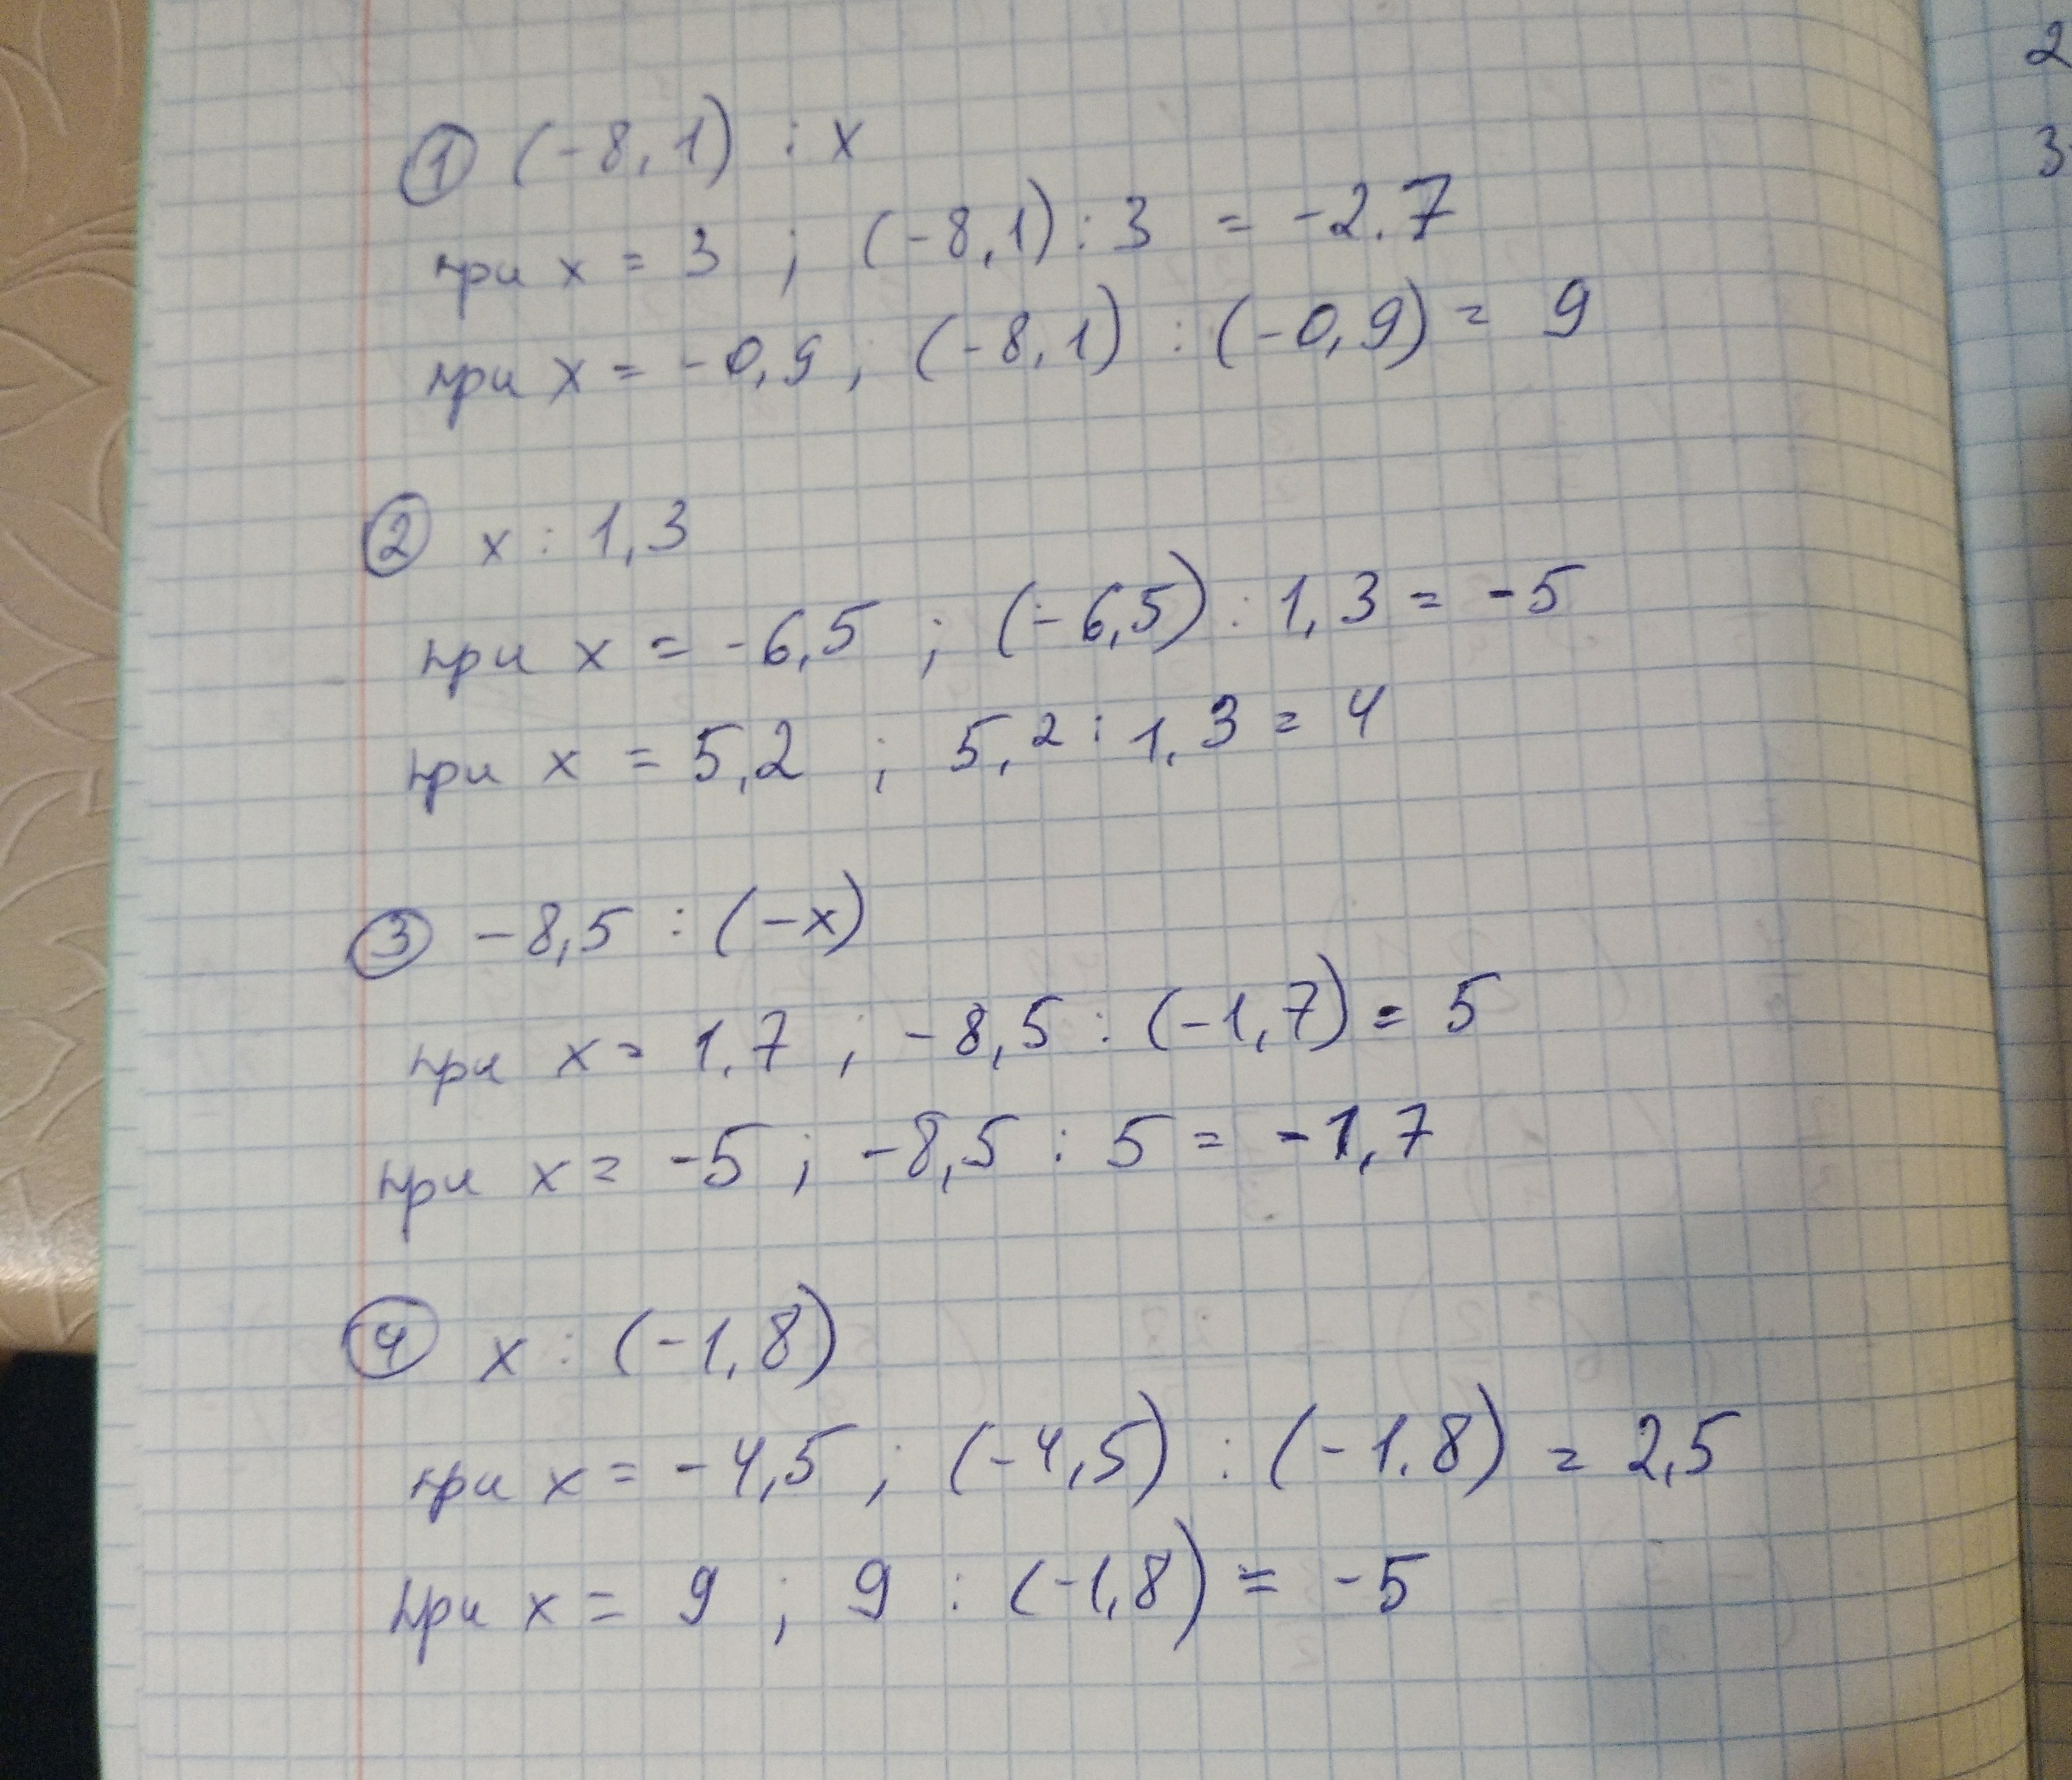 ① (-8,1) : x
при x = 3 ; (-8,1) : 3 = -2.7
при x = -0,9 ; (-8,1) : (-0,9) = 9
② x : 1,3
при x = -6,5 ; (-6,5) : 1,3 = -5
при x = 5,2 ; 5,2 : 1,3 = 4
③ -8,5 : (-x)
при x = 1,7 ; -8,5 : (-1,7) = 5
при x = -5 ; -8,5 : 5 = -1,7
④ x : (-1,8)
при x = -4,5 ; (-4,5) : (-1,8) = 2,5
при x = 9 ; 9 : (-1,8) = -5
2
3